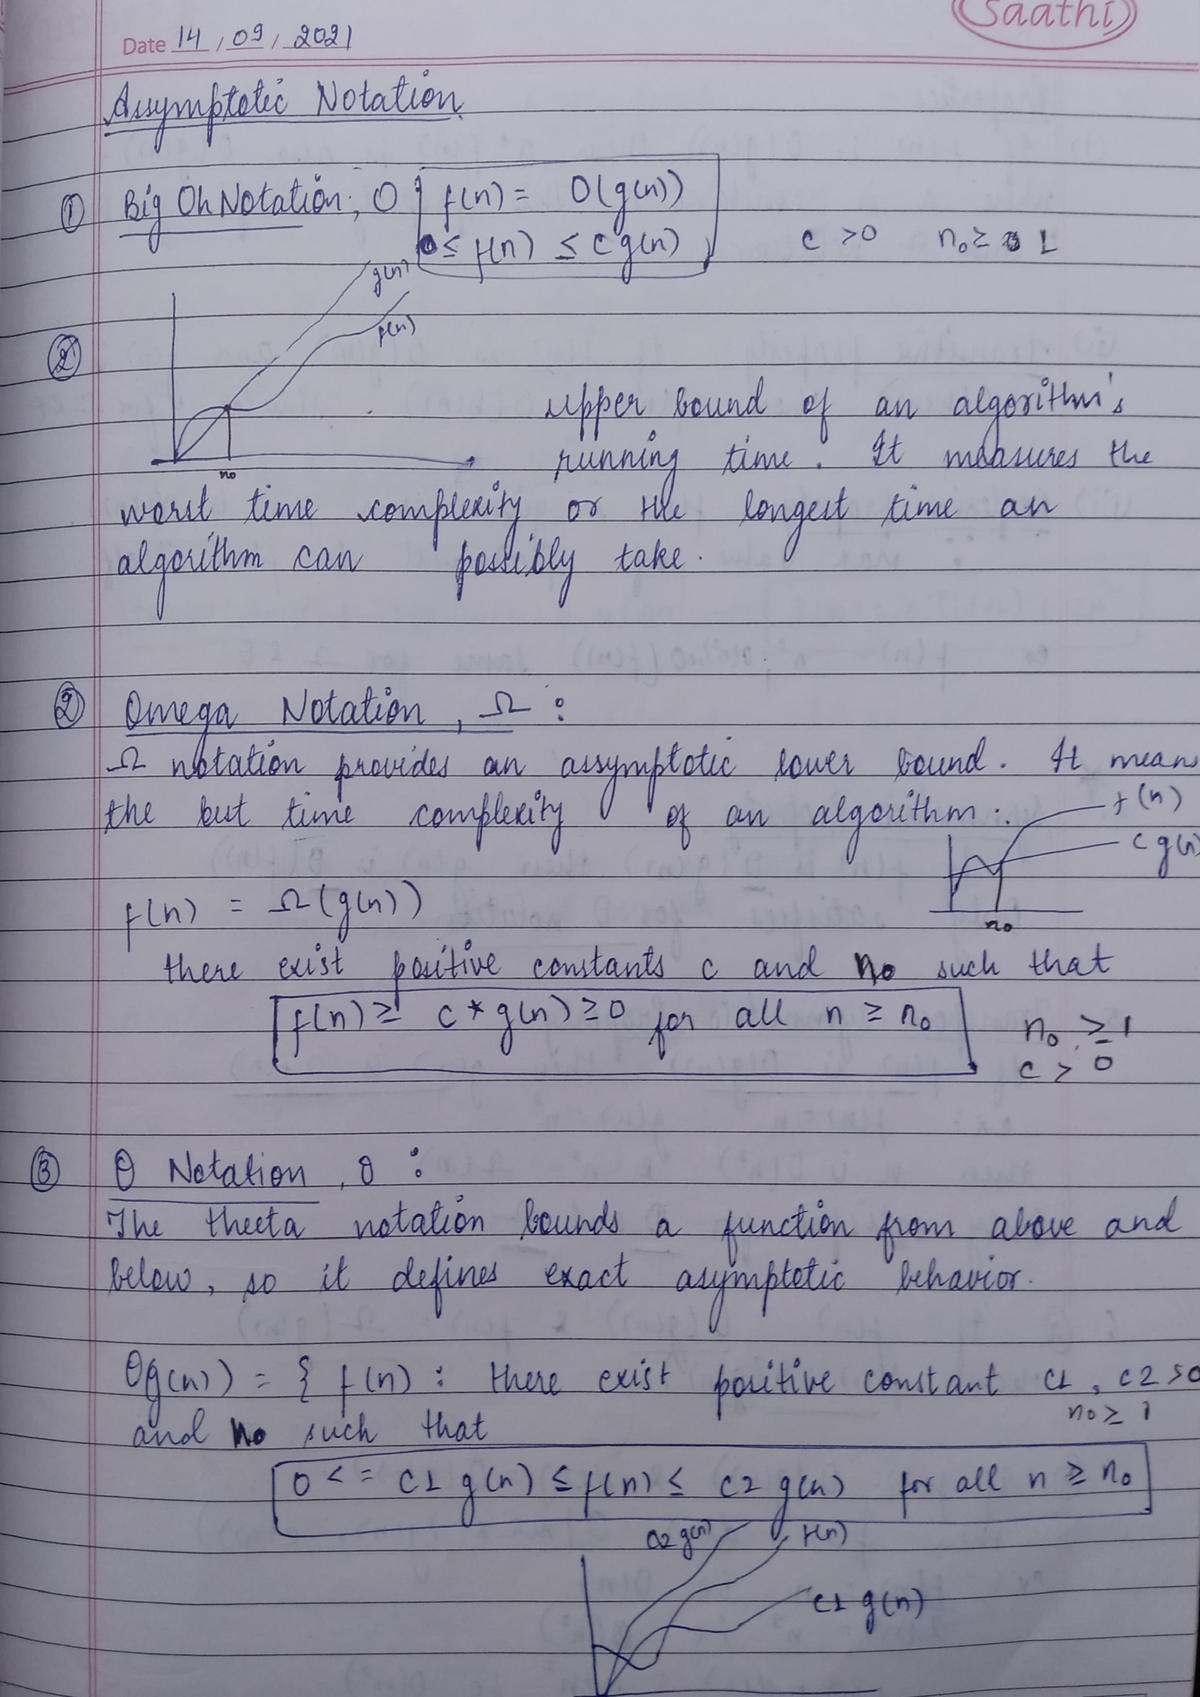 Saathi
Date 14 / 09 / 2021
Assymptotic Notation
① Big Oh Notation, O f(n) = O(g(n))
0 ≤ f(n) ≤ c g(n) c > 0 n₀ ≥ 1
g(n)
f(n)
②
n₀
upper bound of an algorithm's
running time. It measures the
worst time complexity or the longest time an
algorithm can possibly take.
② Omega Notation, Ω :
Ω notation provides an assymptotic lower bound. It means
the best time complexity of an algorithm.
f(n)
c g(n)
n₀
f(n) = Ω(g(n))
there exist positive constants c and n₀ such that
f(n) ≥ c * g(n) ≥ 0 for all n ≥ n₀
n₀ ≥ 1
c > 0
③ θ Notation, θ :
The theeta notation bounds a function from above and
below, so it defines exact asymptotic behavior.
θg(n)) = { f(n) : there exist positive constant c1, c2 >0
n₀ ≥ 1
and n₀ such that
0 <= c1 g(n) ≤ f(n) ≤ c2 g(n) for all n ≥ n₀
c2 g(n)
f(n)
c1 g(n)